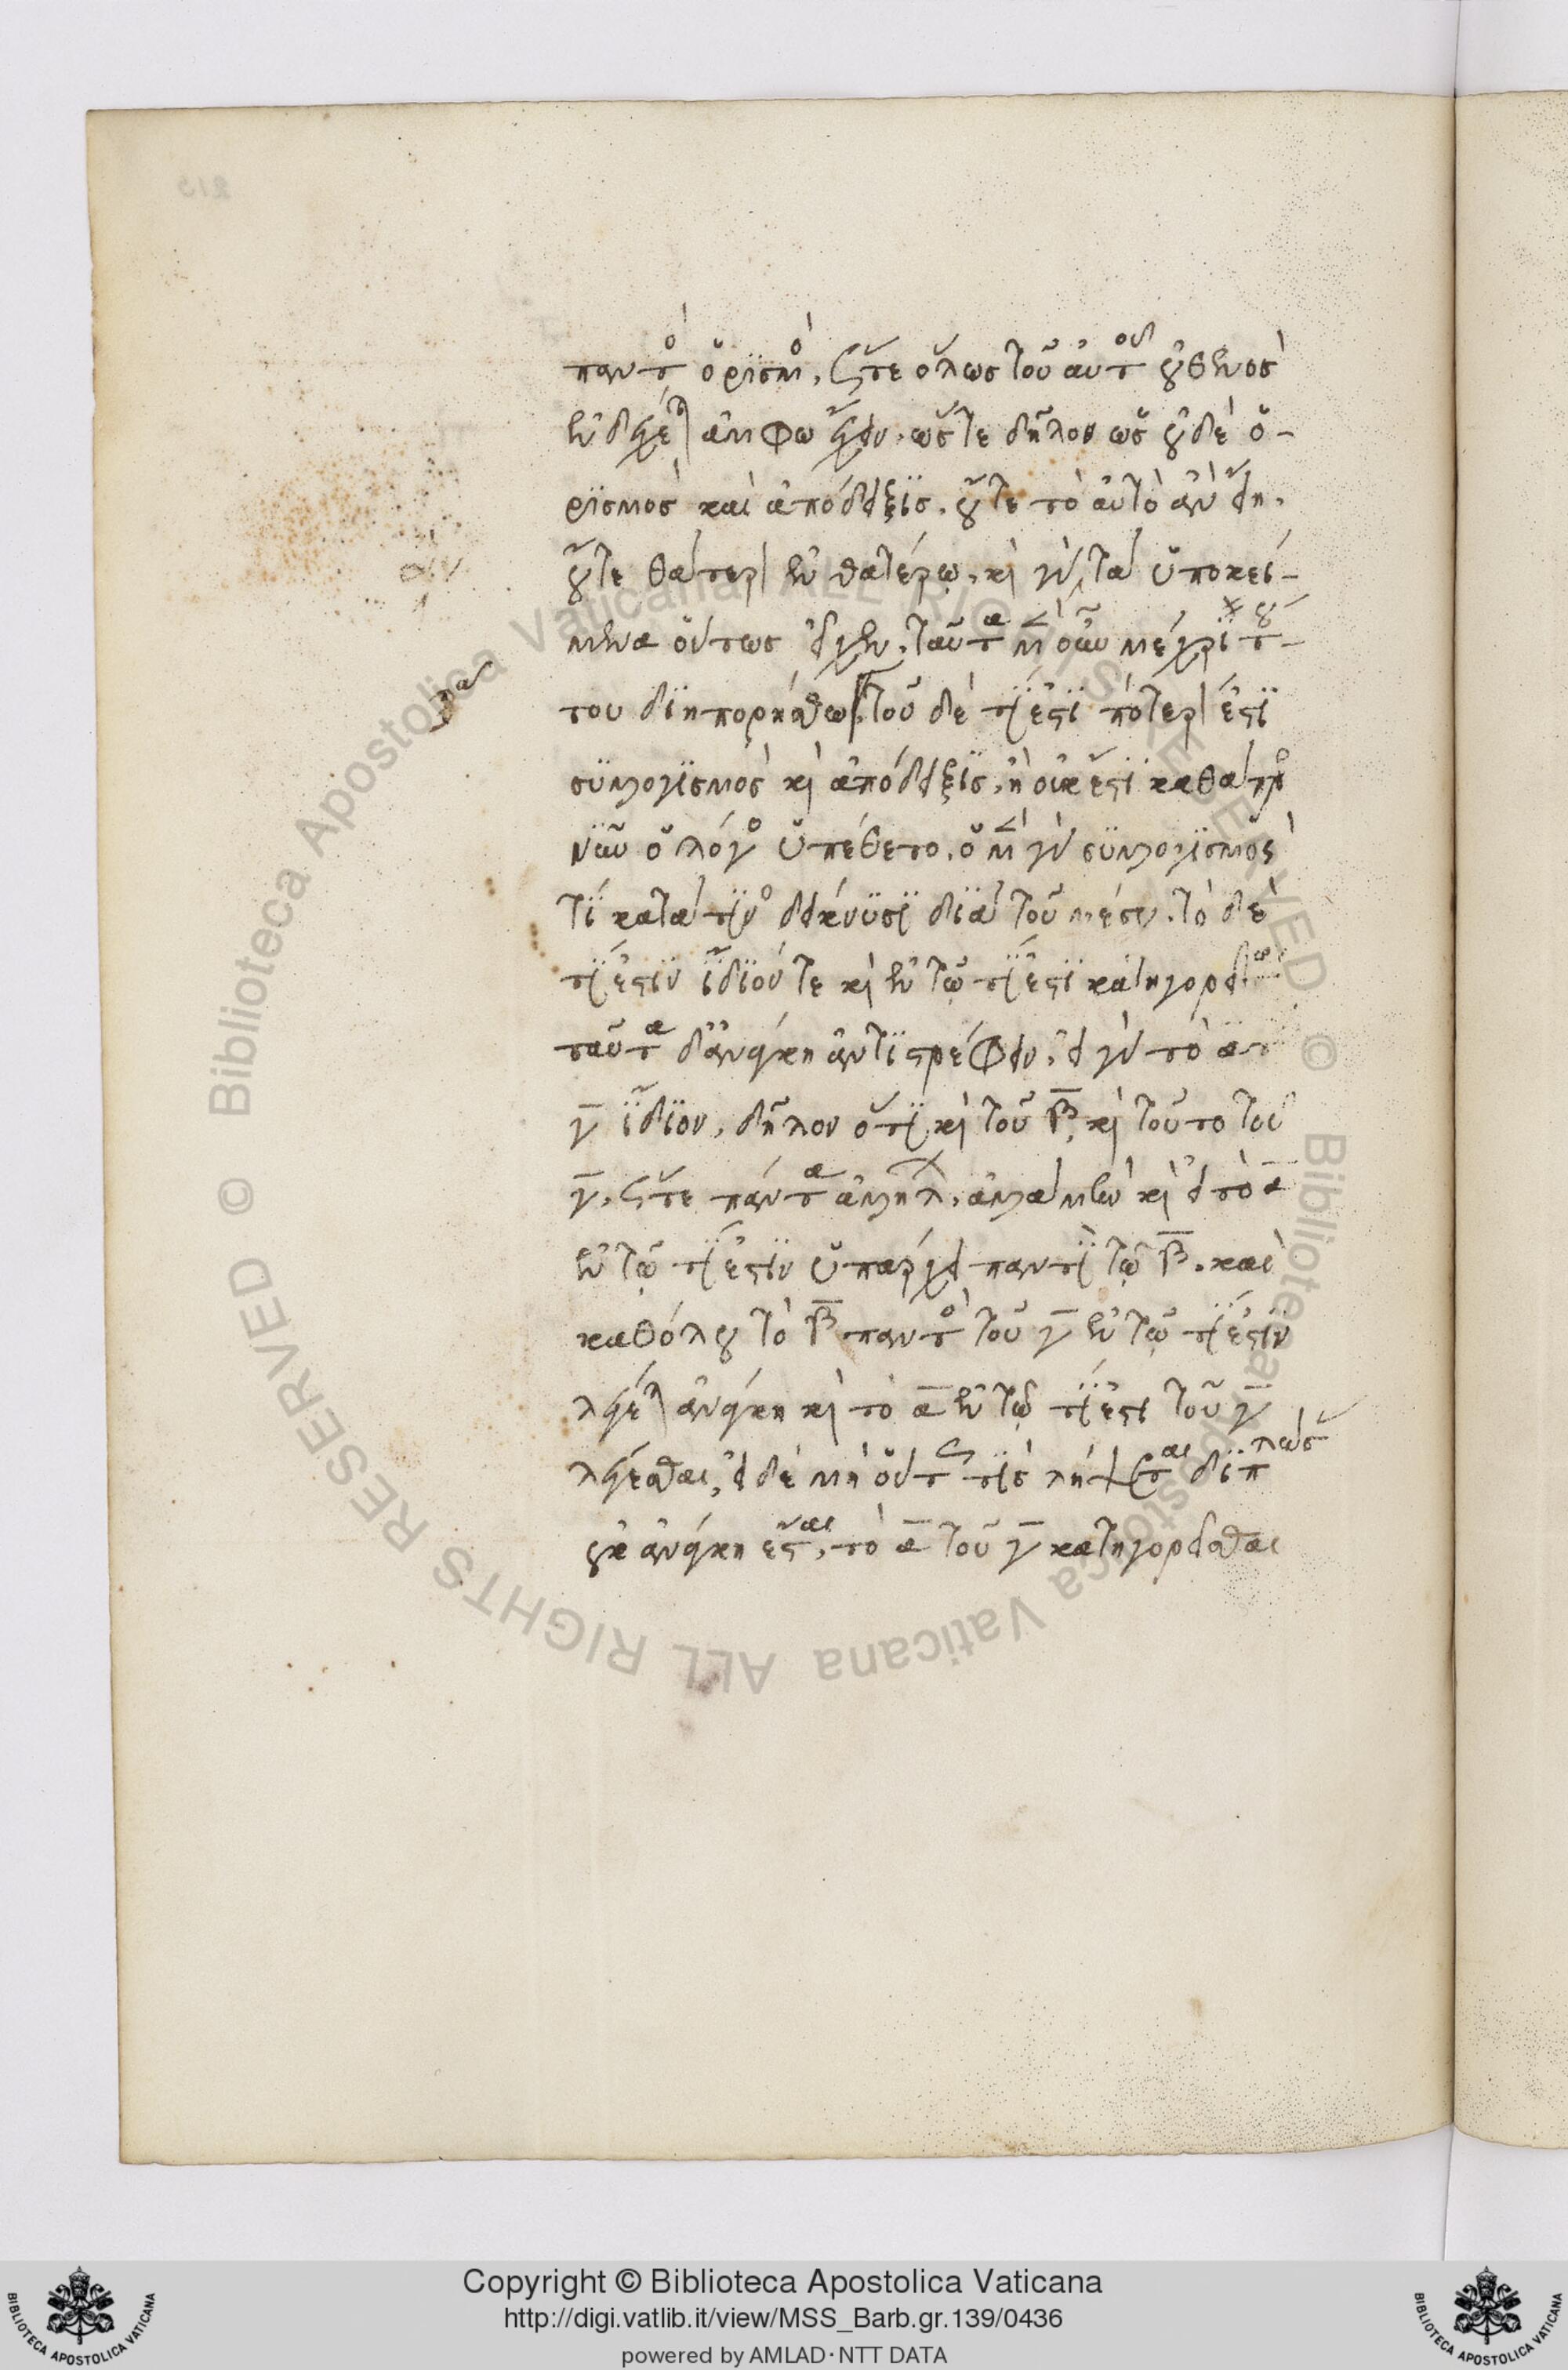 παντὸς ὁρισμός, ὥστε ὅλως τοῦ αὐτοῦ οὐθενὸς
ἐνδέχεται ἄμφω ἔχειν. ὥστε δῆλον ὡς οὐδὲ ὁ-
ρισμὸς καὶ ἀπόδειξις. οὔτε τὸ αὐτὸ ἂν εἴη.
οὔτε θάτερον ἐν θατέρῳ. καὶ γὰρ τὰ ὑποκεί-
μενα οὕτως εἶχεν. ταῦτα μὲν οὖν μέχρι τού-
του διηπορήσθω. τοῦ δὲ τί ἐστι πότερον ἐστι
συλλογισμὸς καὶ ἀπόδειξις, ἢ οὐκ ἔστι καθάπερ
νῦν ὁ λόγος ὑπέθετο. ὁ μὲν γὰρ συλλογισμὸς
τί κατά τινος δείκνυσι διὰ τοῦ μέσου. τὸ δὲ
τί ἐστιν ἴδιόν τε καὶ ἐν τῷ τί ἐστι κατηγορεῖται
ταῦτα δ' ἀνάγκη ἀντιστρέφειν. εἰ γὰρ τὸ α τοῦ
γ ἴδιον, δῆλον ὅτι καὶ τοῦ β, καὶ τοῦτο τοῦ
γ, ὥστε πάντα ἀλλήλων, ἀλλὰ μὴν καὶ εἰ τὸ α
ἐν τῷ τί ἐστιν ὑπάρχει παντὶ τῷ β. καὶ
καθόλου τὸ β παντὸς τοῦ γ ἐν τῷ τί ἐστιν
λέγεται ἀνάγκη καὶ τὸ α ἐν τῷ τί ἐστι τοῦ γ
λέγεσθαι, εἰ δὲ μὴ οὕτως τὶς λήψεται διπλώσας
οὐκ ἀνάγκη ἔσται, τὸ α τοῦ γ κατηγορεῖσθαι
Copyright © Biblioteca Apostolica Vaticana
http://digi.vatlib.it/view/MSS_Barb.gr.139/0436
powered by AMLAD·NTT DATA